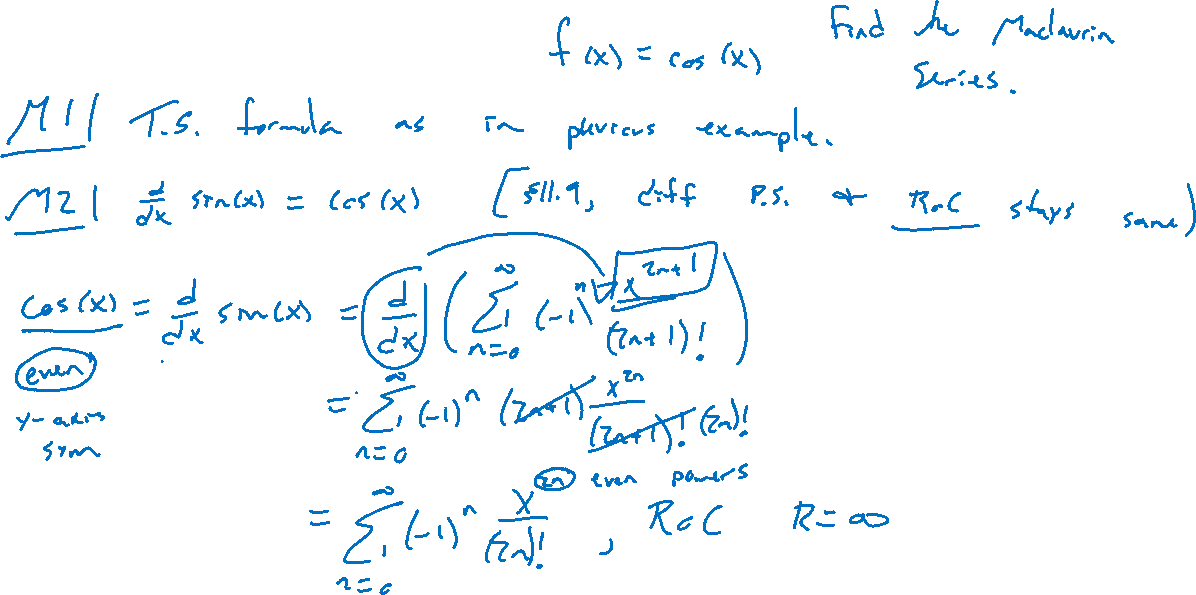 f(x) = cos(x) Find the Maclaurin
Series.
M1| T.S. formula as in previous example.
M2| d/dx sin(x) = cos(x) [§11.9, diff P.S. + RoC stays same)
cos(x) = d/dx sin(x) = d/dx ( ∑_{n=0}^{∞} (-1)^n x^{2n+1}/(2n+1)! )
even
y-axis
sym
= ∑_{n=0}^{∞} (-1)^n (2n+1) x^{2n}/(2n+1)! (2n)!
= ∑_{n=0}^{∞} (-1)^n x^{2n}/(2n)! , RoC R = ∞
even powers